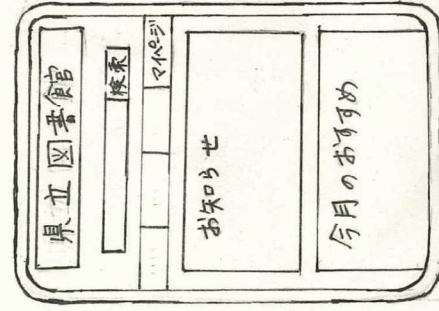 県立図書館
検索
マイページ
お知らせ
今月のおすすめ